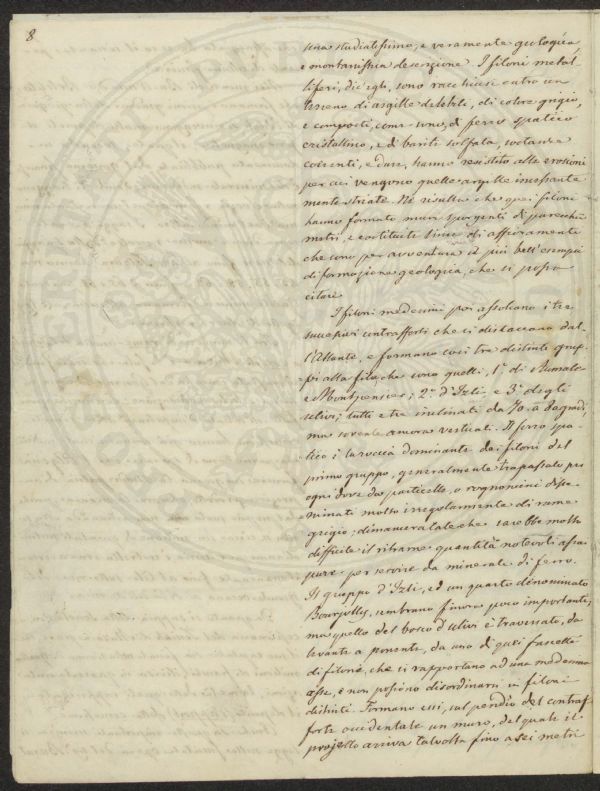 8
una studiatissima, e veramente geologica,
e montanistica descrizione. I filoni metal-
liferi, dic'egli, sono racchiusi entro un
terreno di argille delebili, di colore grigio,
e composti, come sono, di ferro spatico
cristallino, e di barite solfata, sostanze
coerenti, e dure, hanno resistito alle erosioni
per cui vengono quelle argille incessante
mente striate. Ne risulta che quei filoni
hanno formato muri sporgenti di parecchi
metri, e costituiti linee di affioramento
che sono per avventura i più bell'esempi
di formazione geologica, che si possa
citare
I filoni medesimi poi assolcano i tre
successivi contrafforti che si distaccano dal-
l'Atlante, e formano così tre distinti grup-
pi alla fila, che sono quelli, 1.° di Aumale
e Montpensier; 2.° d'Izli e 3.° degli
ulivi; tutti e tre inclinati da 70. a gradi,
ma sovente ancora verticali. Il ferro spa-
tico è la roccia dominante dei filoni del
primo gruppo, generalmente trapassato per
ogni dove da particelle, o rognoncini disse-
minati molto irregolarmente di rame
grigio; dimaneraché sarebbe molto
difficile il ritrarne quantità notevoli assai
pure per servire da minerale di ferro.
Il gruppo d'Izli, ed un quarto denominato
Bourjolly, sembrano finora poco importanti;
ma quello del bosco d'ulivi è traversato, da
levante a ponente, da uno di quei fascetti
di filone, che si rapportano ad una medesima
asse, e non possono disordinarsi in filoni
distinti. Formano essi, sul pendio del contraf-
forte occidentale un muro, del quale il
projetto arriva talvolta fino a sei metri